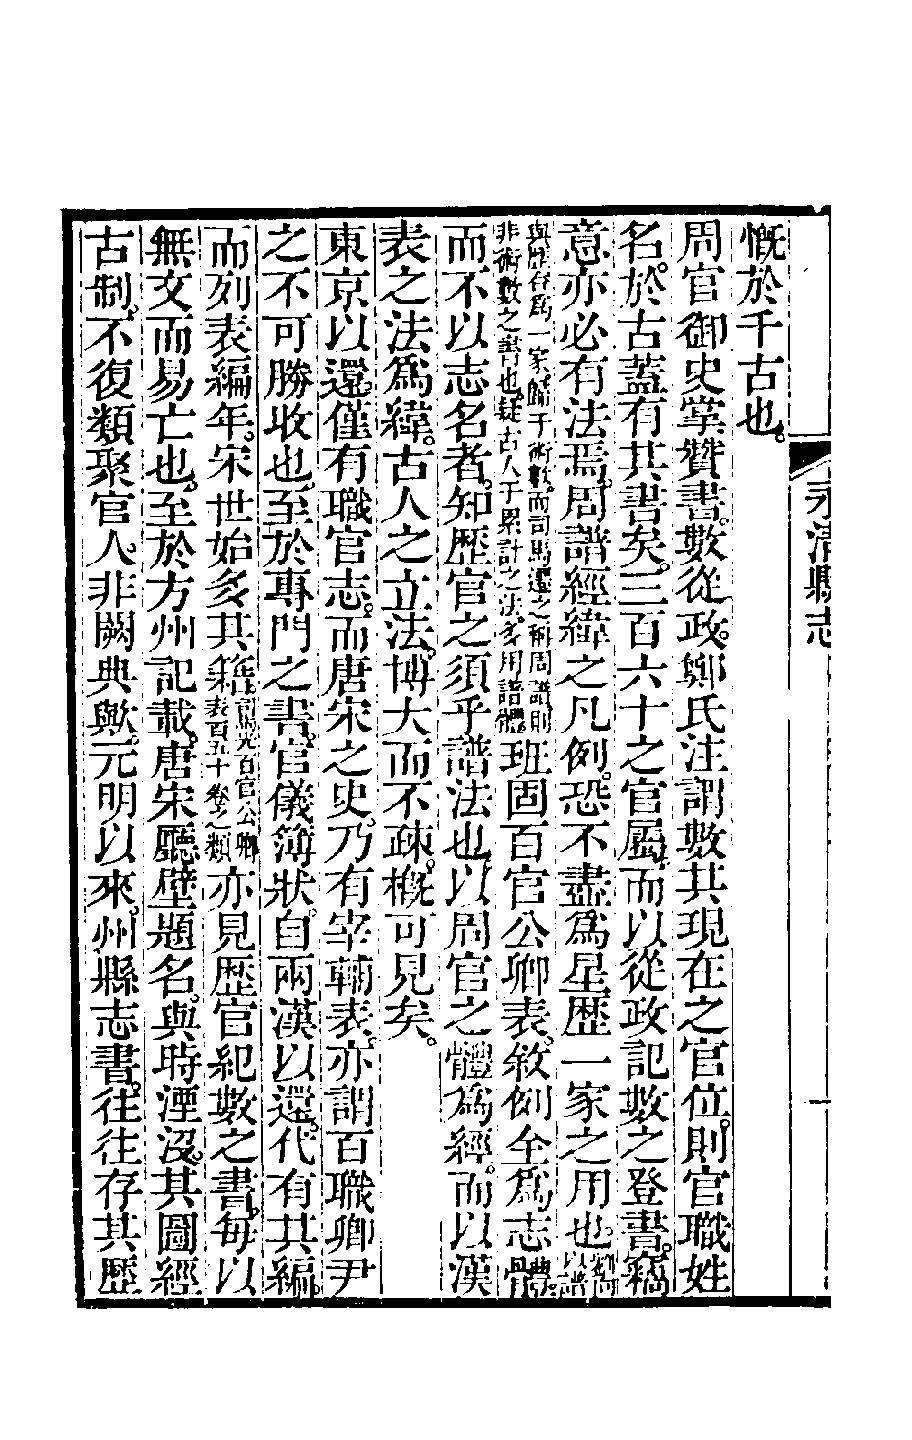 永淸縣志
一
慨於千古也。
周官御史掌贊書。數從政。鄭氏注謂數其現在之官位。則官職姓
名。於古蓋有其書矣。三百六十之官屬。而以從政記數之登書。竊
意亦必有法焉。周譜經緯之凡例。恐不盡爲星歷一家之用也。劉向以譜
與歷合爲一家歸于術數。而司馬遷之稱周譜則非術數之書也。疑古人于累計之法。多用譜體 班固百官公卿表。敘例全爲志體。
而不以志名者。知歷官之須乎譜法也。以周官之體爲經。而以漢
表之法爲緯。古人之立法。博大而不疎。槪可見矣。
東京以還。僅有職官志。而唐宋之史。乃有宰輔表。亦謂百職卿尹
之不可勝收也。至於專門之書。官儀簿狀。自兩漢以還。代有其編。
而列表編年。宋世始多其籍。司馬光百官公卿表百五十卷之類 亦見歷官紀數之書。每以
無文而易亡也。至於方州記載。唐宋廳壁題名。與時湮沒。其圖經
古制。不復類聚官人。非闕典歟。元明以來。州縣志書。往往存其歷